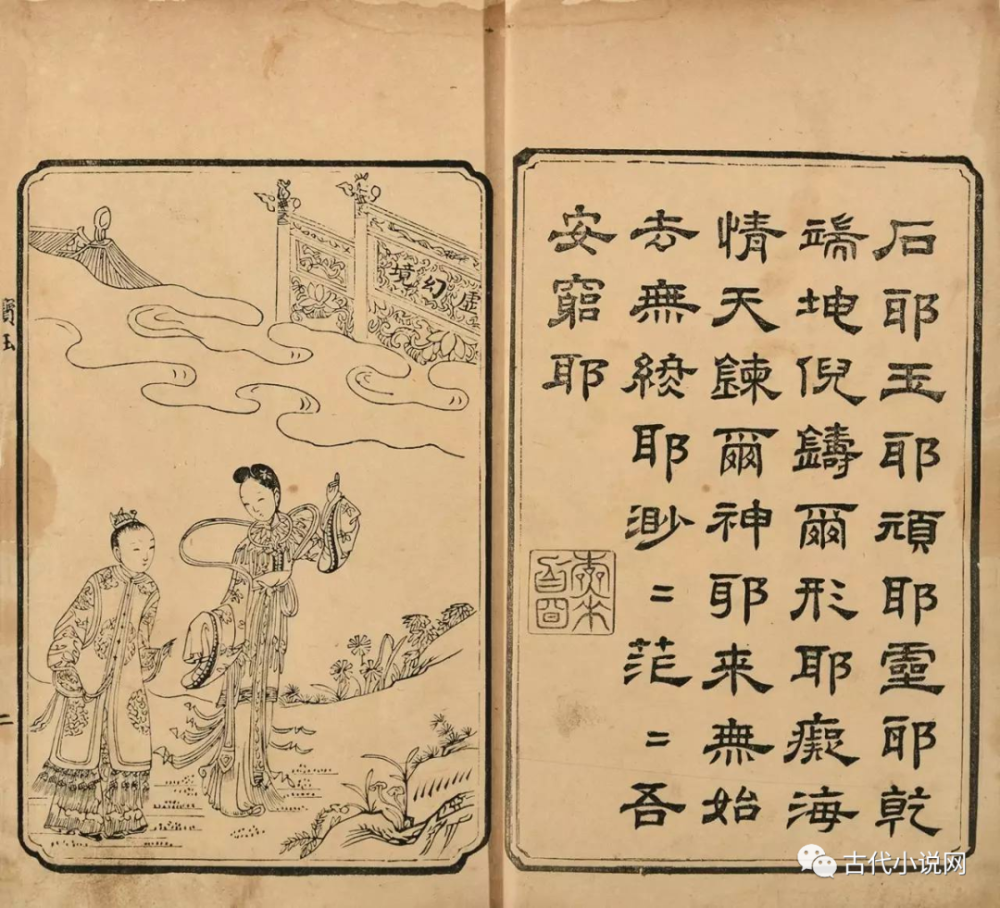 石耶玉耶頑耶靈耶乾
端坤倪鑄爾形耶癡海
情天鍊爾神耶来無始
去無終耶渺〻茫〻吾
安窮耶
虛幻境
寶玉
二
古代小说网